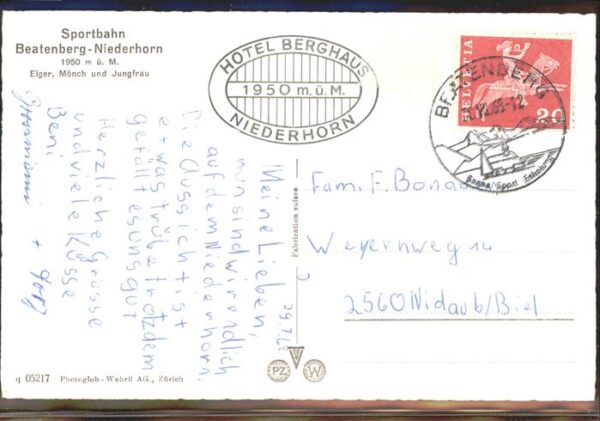 Sportbahn
Beatenberg-Niederhorn
1950 m ü. M.
Eiger, Mönch und Jungfrau
HOTEL BERGHAUS
1950 m.ü.M.
NIEDERHORN
HELVETIA
20
BEATENBERG
Sonne Sport Erholung
29.7.
Meine Lieben,
nun sind wir endlich
auf dem Niederhorn.
Die Aussicht ist
etwas trübe trotzdem
gefällt es uns gut
Herzliche Grüsse
und viele Küsse
Beni,
Fam. F. Bona
Weyernweg 14
2560 Nidau b/Biel
Fabrication suisse
PZ
W
q 05217 Photoglob-Wehrli AG., Zürich